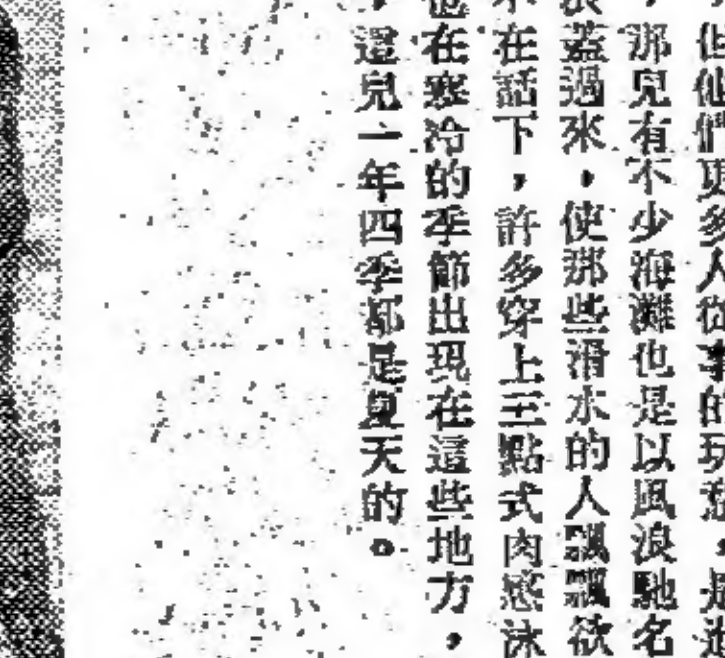 但他們更多人從事的玩意，是
，那兒有不少海灘也是以風浪馳名
浪蓋過來，使那些滑水的人飄飄欲
不在話下，許多穿上三點式肉感泳
也在寒冷的季節出現在這些地方，
，這兒一年四季都是夏天的。